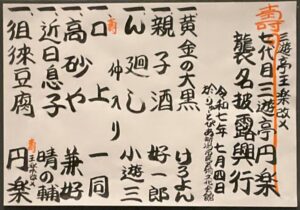 壽
三遊亭王楽改メ
七代目三遊亭円楽
襲名披露興行
令和七年七月四日
一黄金の大黒 けろよん
一親子酒 好一郎
一ん廻し 小遊三
壽 仲入り
一口上 一同
一高砂や 兼好
一近日息子 晴の輔
一徂徠豆腐 壽 王楽改メ 円楽